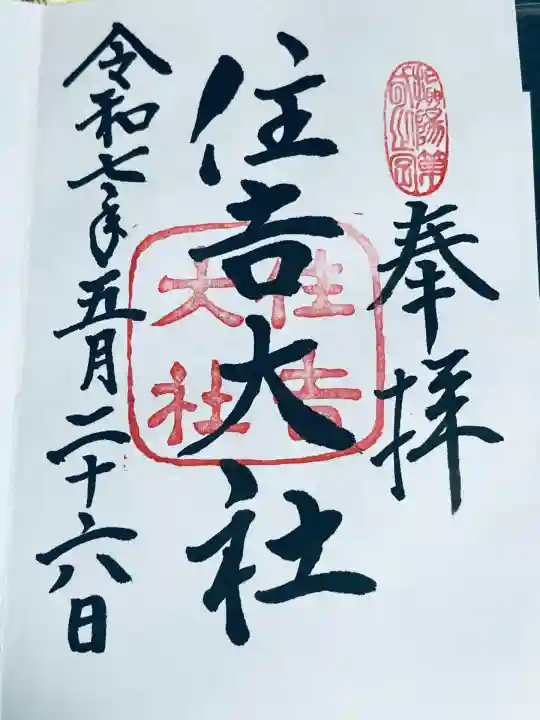 奉拝
住吉大社
住吉大社
令和七年五月二十六日